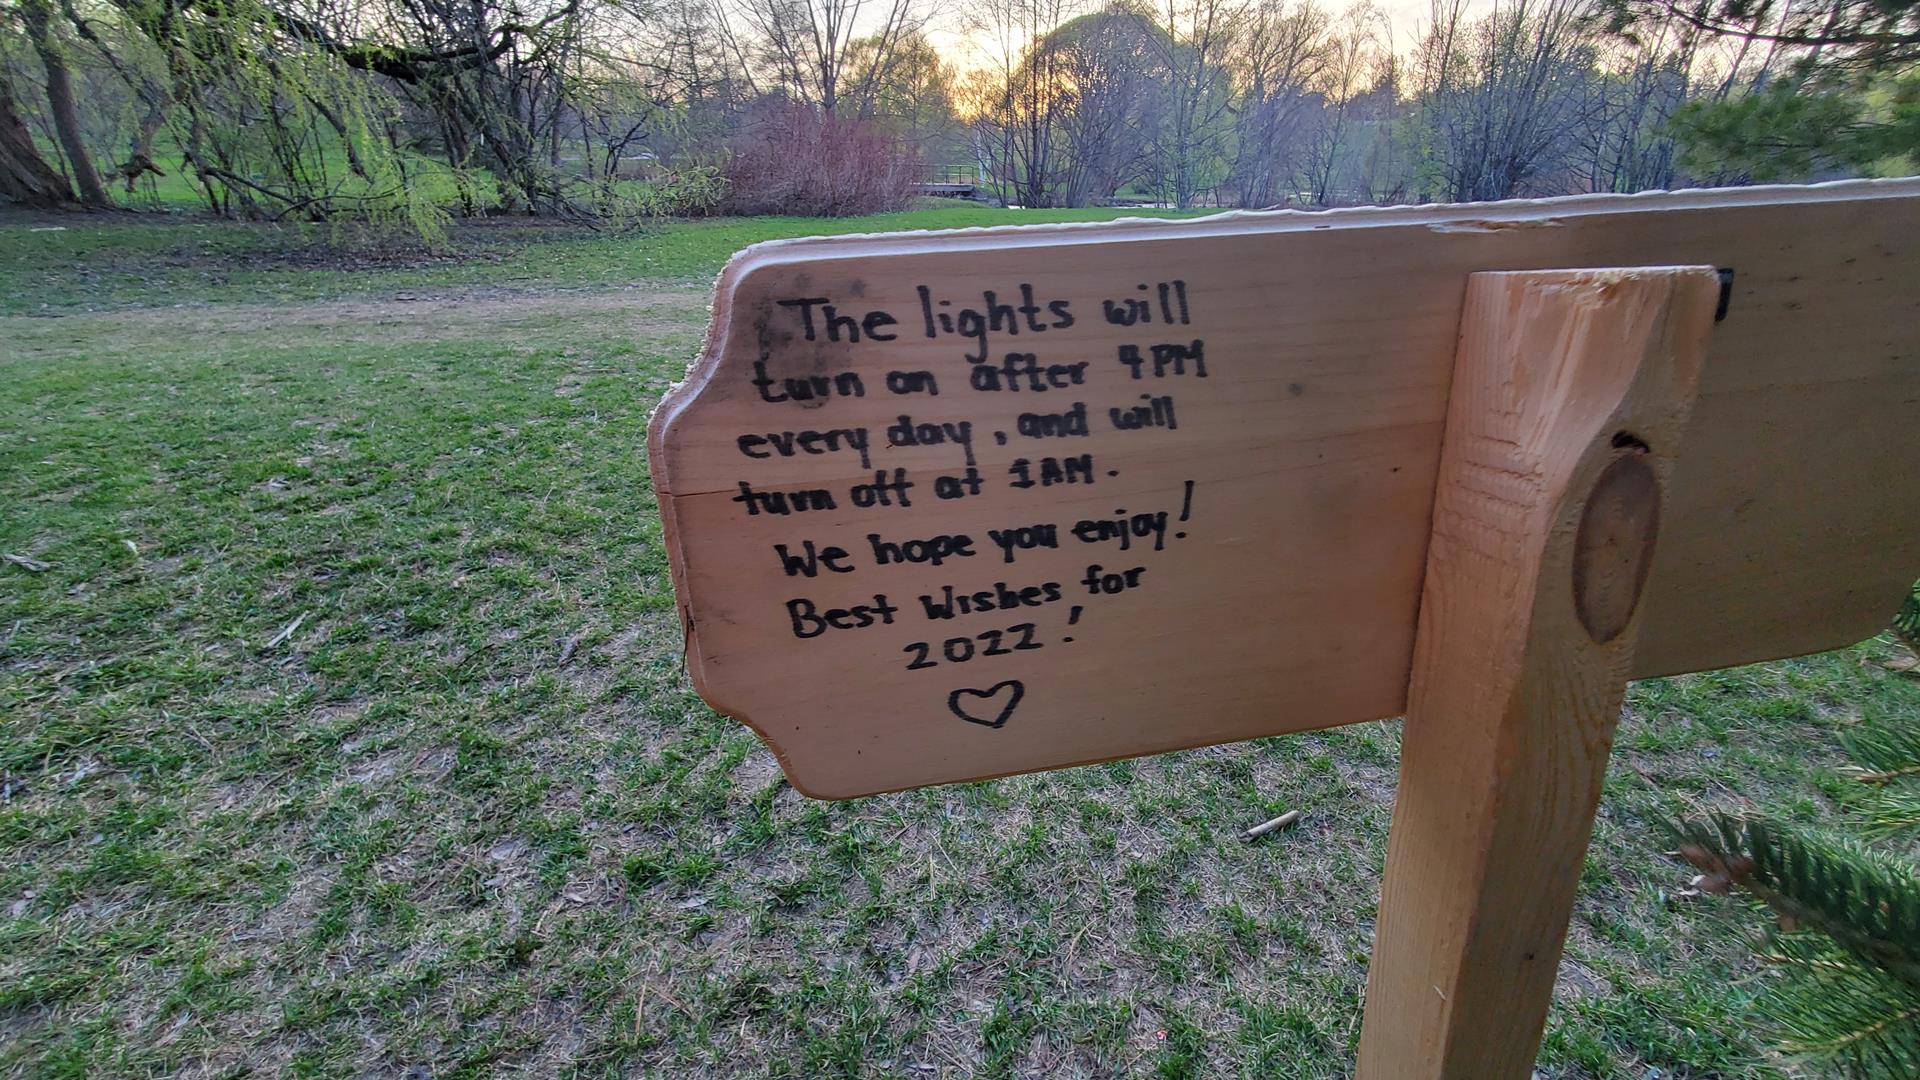 The lights will
turn on after 4PM
every day, and will
turn off at 1AM.
We hope you enjoy!
Best Wishes for
2022!